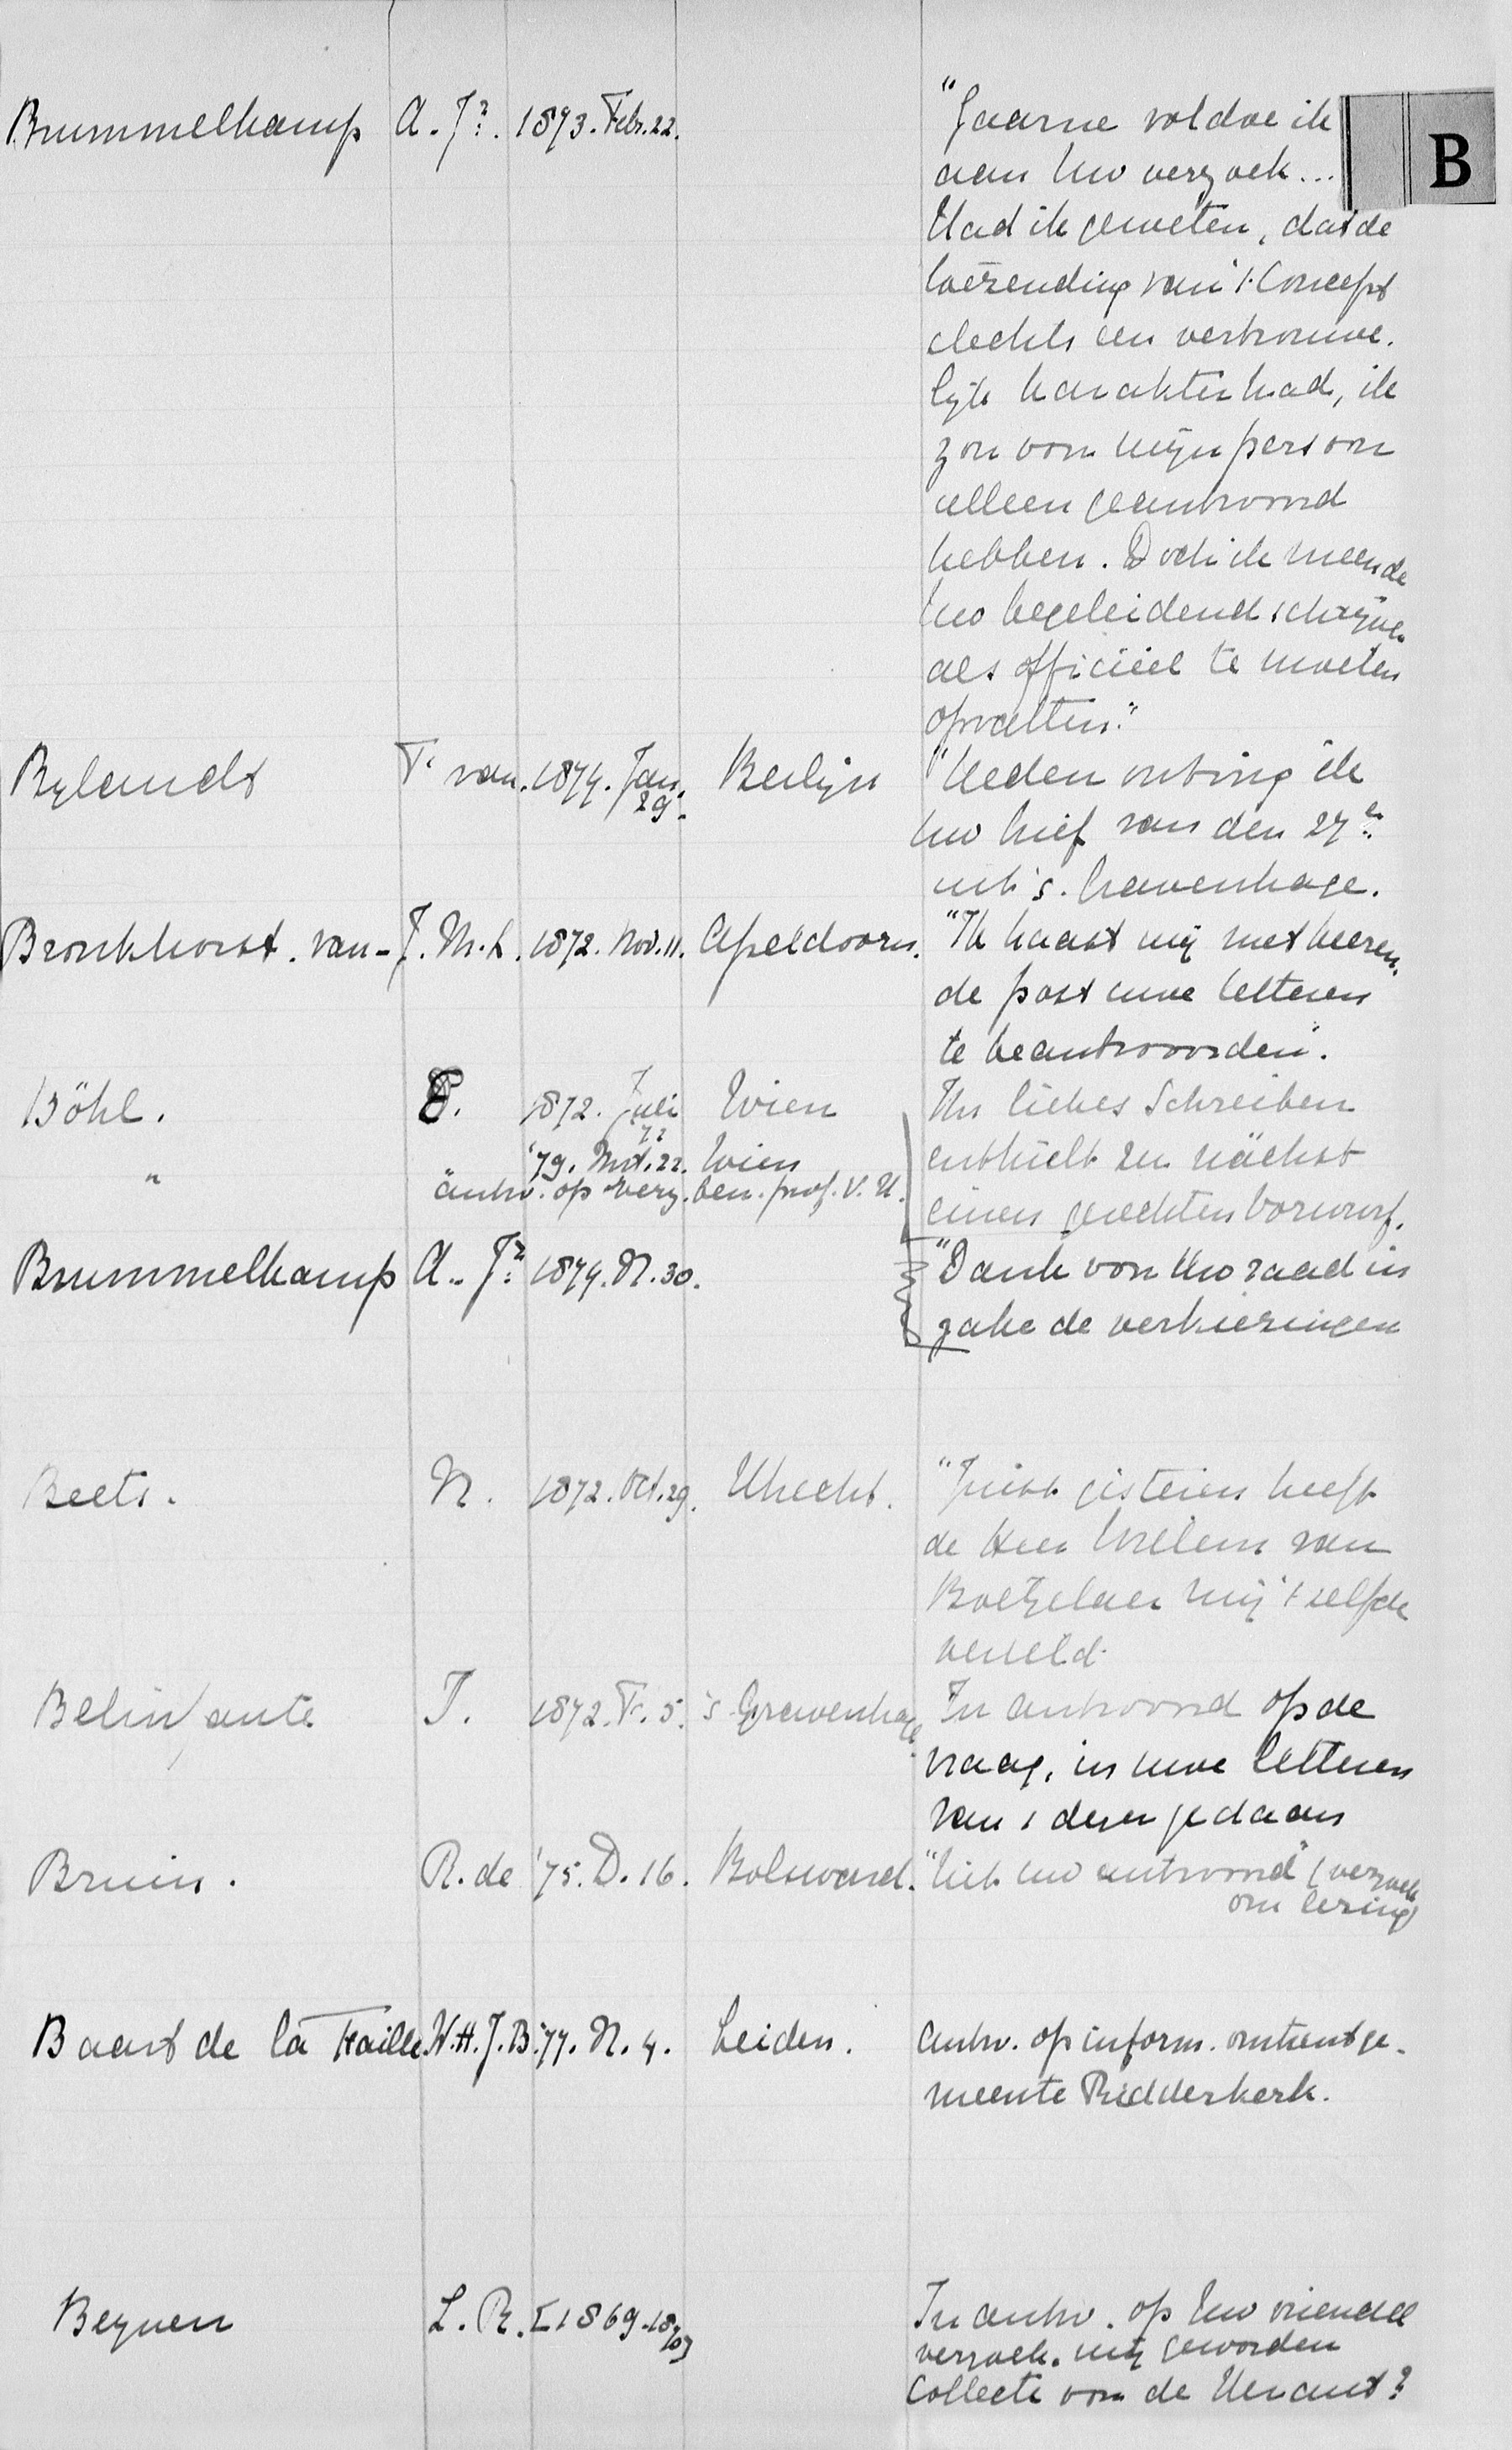 B
Brummelkamp A. Jr. 1873. Febr. 22. "Gaarne voldoe ik
aan Uw verzoek...
Had ik geweten, dat de
toezending van 't Concept
slechts een vertrouwe-
lijk karakter had, ik
zou voor mijn persoon
alleen geantwoord
hebben. Doch ik meende
Uw begeleidend schrijven
als officiëel te moeten
opvatten."
Bylandt T. van. 1874. Jan. 29. Berlijn "Heden ontving ik
Uw brief van den 27en
uit 's-Gravenhage.
Bronkhorst. van - J. M. L. 1872. Nov. 11. Apeldoorn. "Ik haast mij met keeren-
de post uwe letteren
te beantwoorden".
Böhl. E. 1872. Juli Wien Ihr liebes Schreiben
" '79. Wien enthielt zu nächst
antw. op verz. ben. prof. V. U. einen gerechten Vorwurf.
Brummelkamp A. Jr. 1874. N. 30. "Dank voor Uw raad in
zake de verkiezingen
Beets. N. 1872. Oct. 29. Utrecht. "Juist gisteren heeft
de Heer Willem van
Boetzelaer mij 't zelfde
gemeld.
Belinfante J. 1872. F. 5. 's Gravenhage. In antwoord op de
vraag, in uwe letteren
van 1 dezer gedaan
Bruin. R. de '75. D. 16. Bolsward. "Uit uw antwoord" (verzoek
om lezing)
Baart de la Faille W. H. J. B. '77. N. 4. Leiden. antw. op inform. omtrent ge-
meente Ridderkerk.
Beynen L. R. 1869 In antw. op Uw vriendel
verzoek. mij geworden
Collecte voor de Heraut?